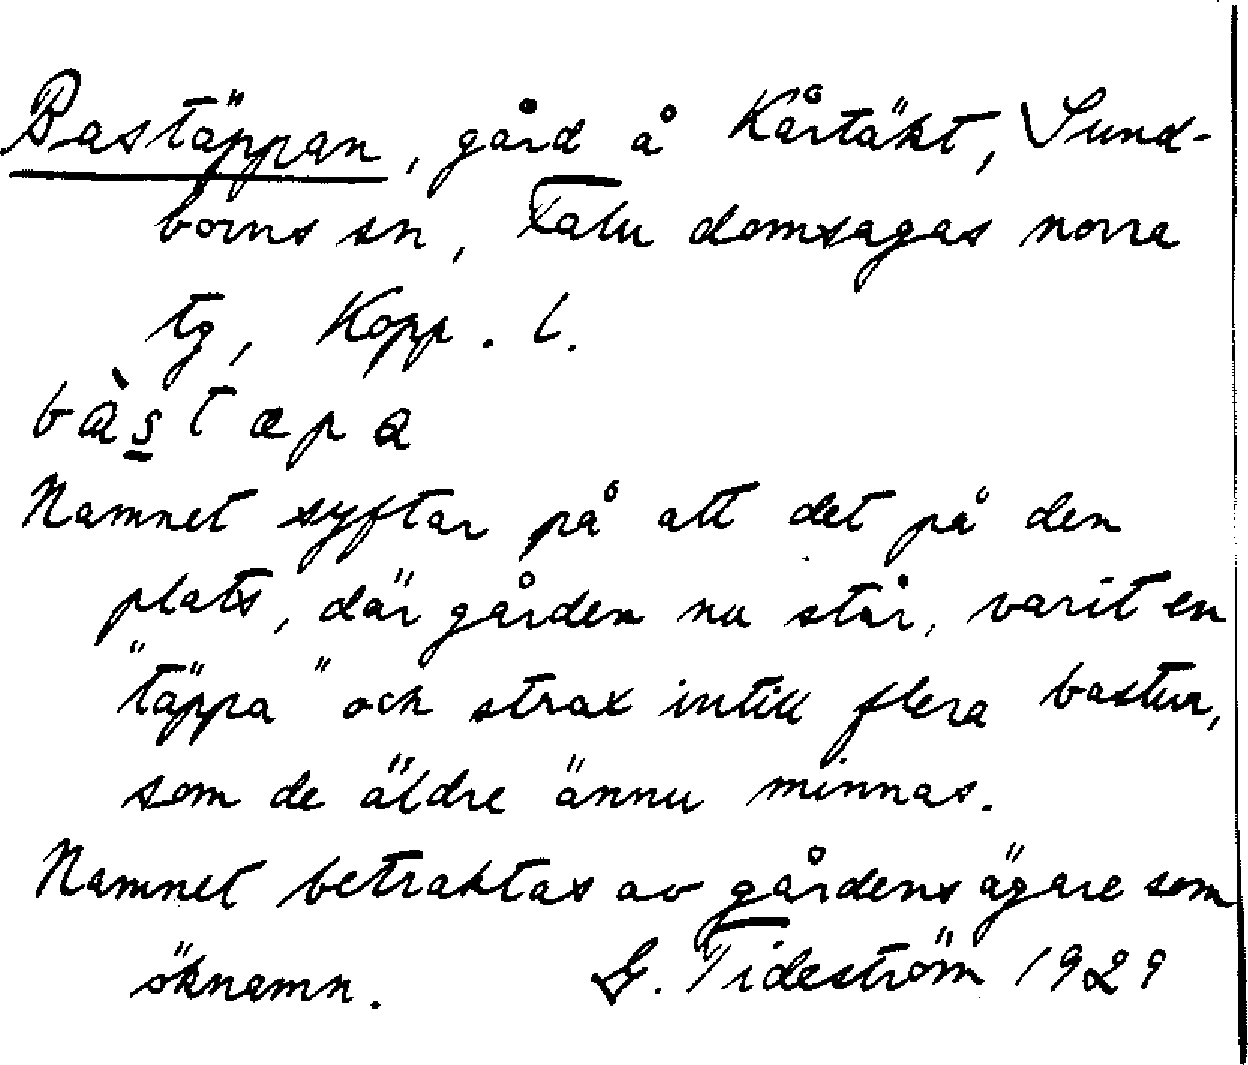 Bastäppan, gård å Kårtäkt, Sund-
borns sn, Falu domsagas norra
tg, Kopp. l.
bàstæpa
Namnet syftar på att det på den
plats, där gården nu står, varit en
"täppa" och strax intill flera bastur,
som de äldre ännu minnas.
Namnet betraktas av gårdens ägare som
öknamn. G. Tideström 1929